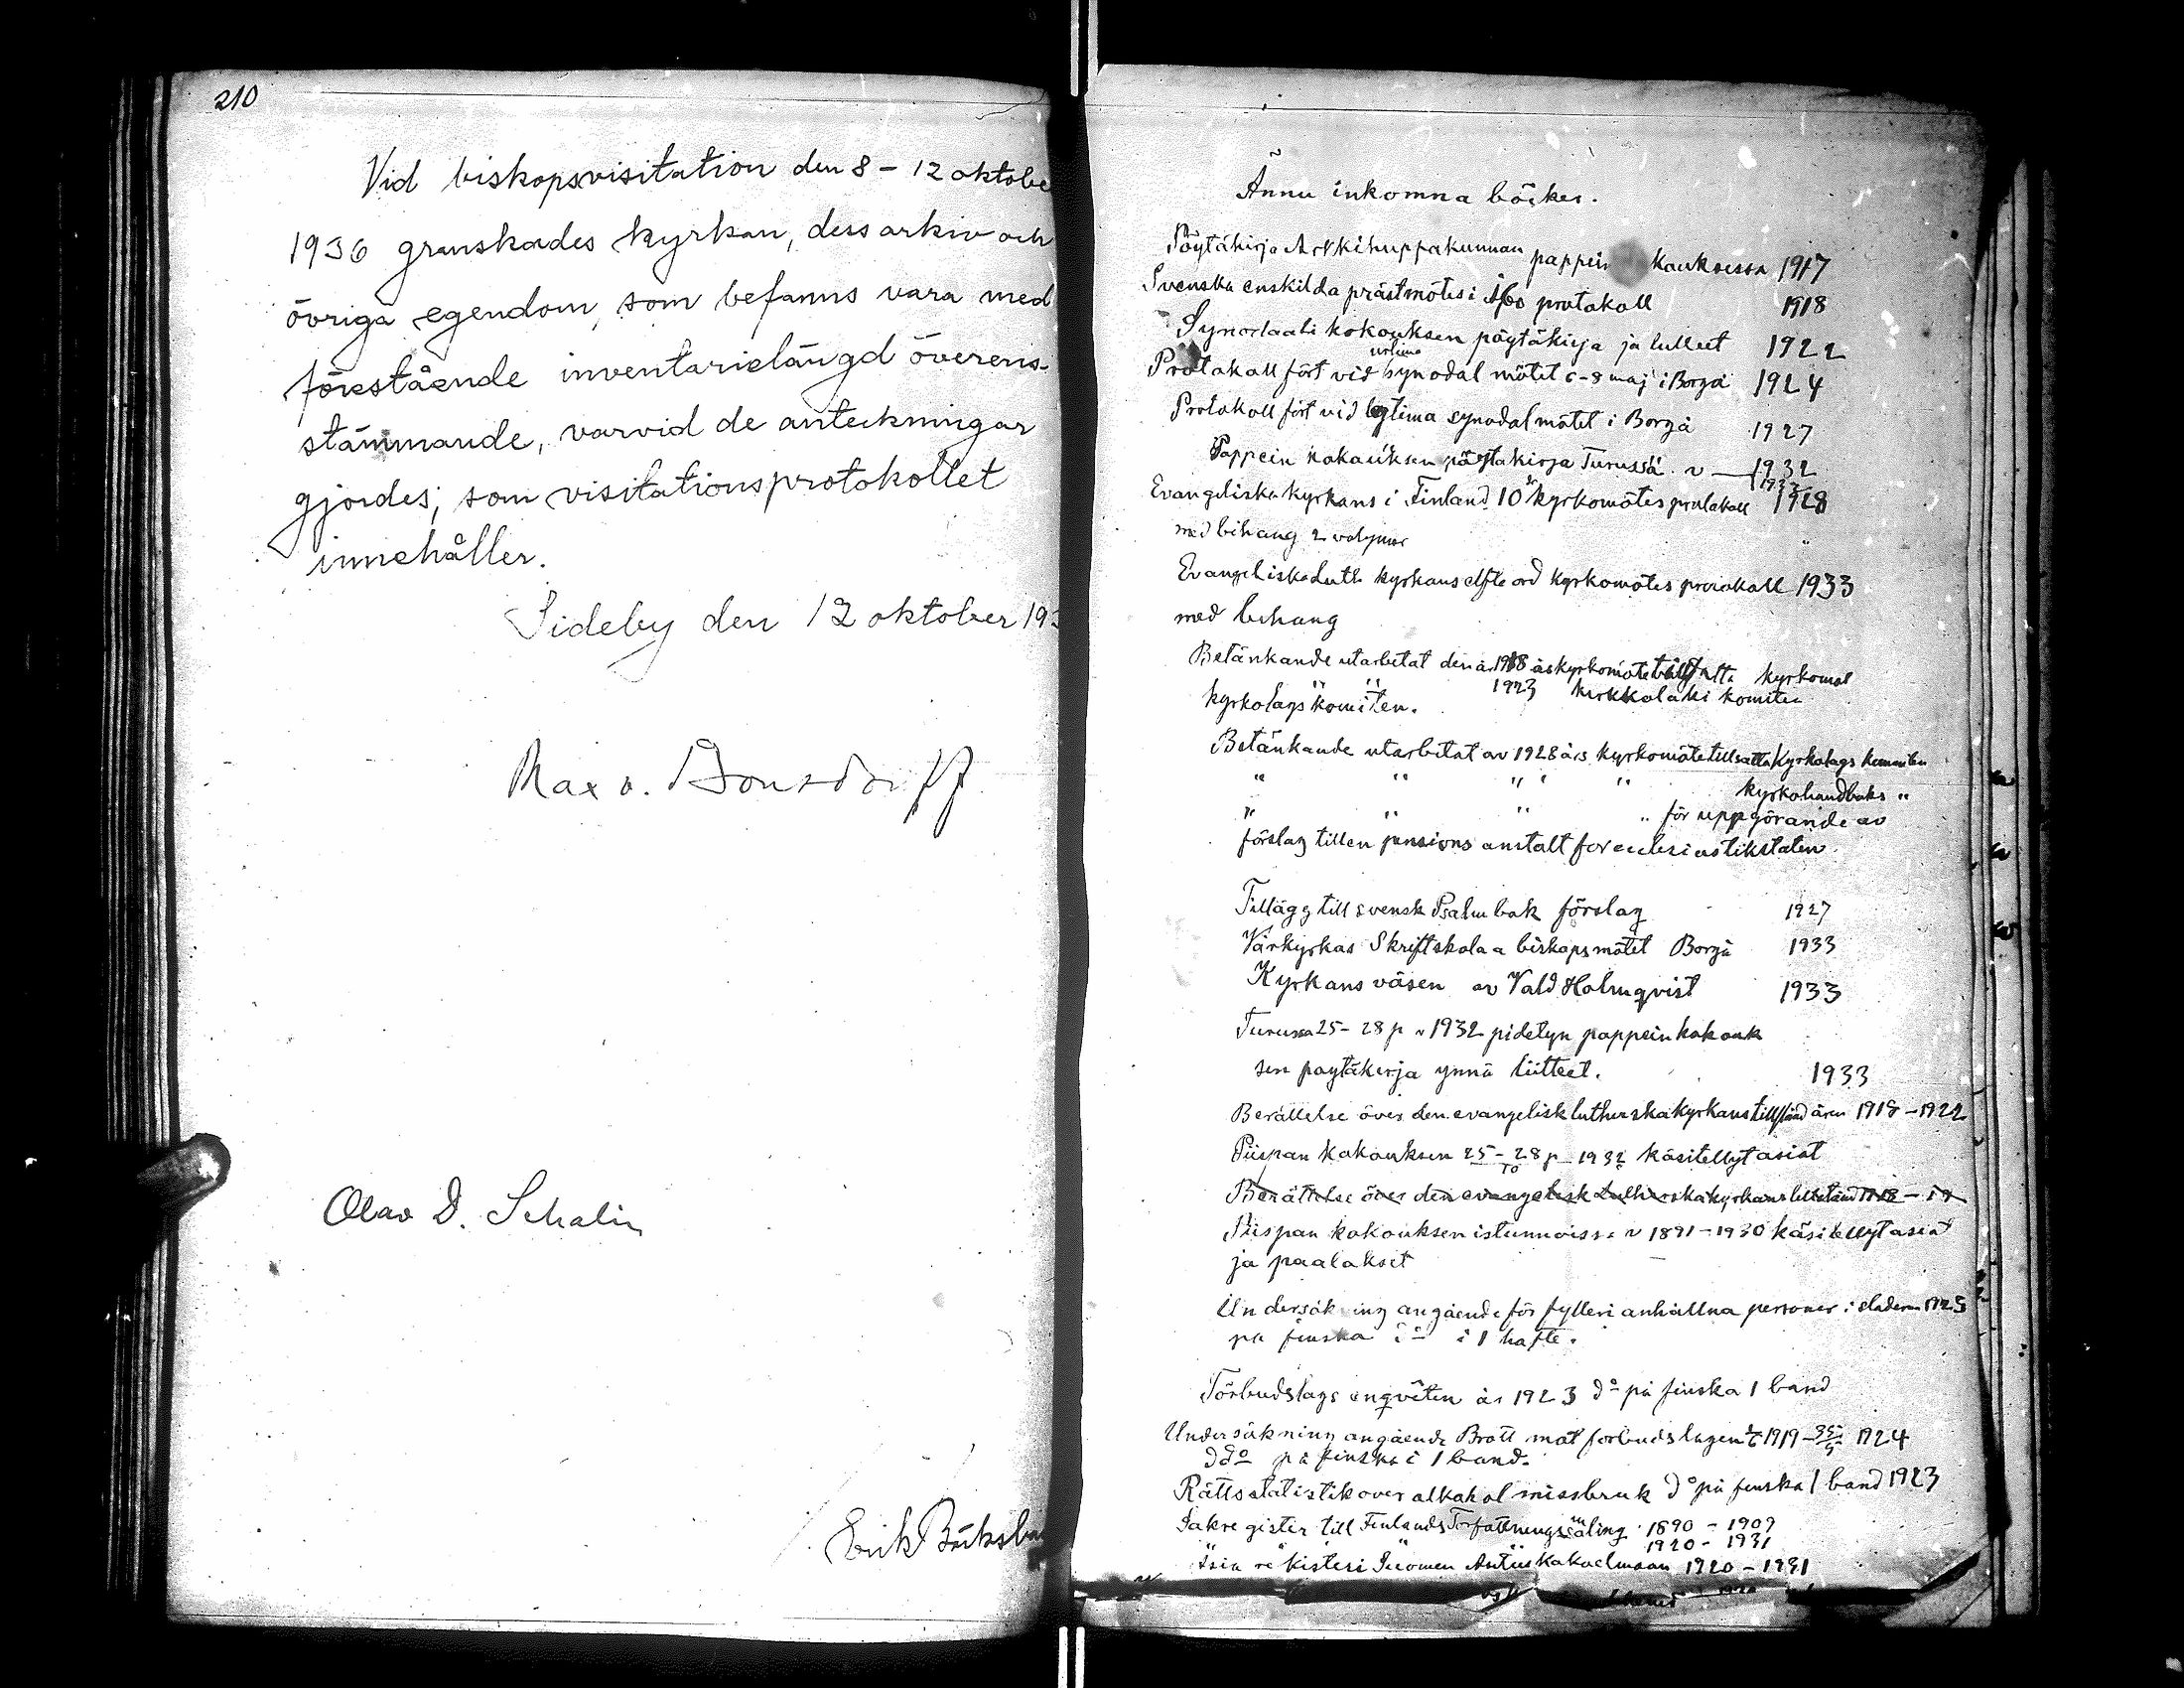 210
Vid biskopsvisitation den 8 - 12 oktobe
1936 granskades kyrkan, dess arkiv och
övriga egendom, som befanns vara med
förestående inventarielängd överens-
stämmande, varvid de anteckningar
gjordes, som visitationsprotokollet
innehåller.
Sideby den 12 oktober 193
Max v. Bonsdorff
Olav D. Schalin
Erik
Ännu inkomna böcker.
Pöytäkirja Arkkihippakunnan pappein kouksessa 1917
Svenska enskilda prästmötes i Åbo protokoll 1918
Synodaali kokouksen pöytäkirja ja lulleet 1922
Protokoll fört vid synodal mötet 6-8 maj i Borgå 1924
Protokoll fört vid legtima synodalmötet i Borgå 1927
Pappein kokouksen pöytakirja Turussa. v — 1932
1933
Evangeliska kyrkans i Finland 10 kyrkomötes protokoll 1928
med bihang 2 volymer
Evangeliska Luth kyrkans elfte ord kyrkomötes protokoll 1933
med bihang
Betänkande utarbetat den år 1918 års kyrkomöte tillsatta kyrkomöt
kyrkolags komiten. 1923 kirkkolaki komitea
Betänkande utarbetat av 1928 års kyrkomöte tillsatta kyrkolags
" " " " " kyrkohandboks "
" " " " för uppgörande av
förslag till en pensions anstalt for ecclesiastikstaten.
Tillägg till svensk Psalmbok förslag 1927
Vårkyrkas Skriftskola a biskopsmötet Borgå 1933
Kyrkans väsen av Vald Holmqvist 1933
Turussa 25 - 28 p v 1932 pidetyn pappein kokouk
sen poytäkirja ynnä liitteet. 1933
Berättelse över den evangelisk lutherska kyrkans tillstånd åren 1918 - 1922
Piispan kokouksen 25 - 28 p 1932 käsitellyt asiat
Berättelse över den evangelisk Lutherska kyrkans tillstånd 1918 - 19
Piispan kokouksen istunnoissa v 1891 - 1930 käsitellyt asiat
ja paatokset
Undersökning angående för fylleri anhållna personer i städerna 1923
på finska i 1 hafte.
Förbudslags enqvêten år 1923 do på finska 1 band
Undersökning angående Brott mot forbudslagen 1919 - 1924
ddo på finska i 1 band.
Rättsstatistik over alkohol missbruk do på finska 1 band 1923
Sakregister till Finlands Forfattningssamling 1890 - 1909
1920 - 1931
Asia rekisteri Suomen Asetuskokoelmaan 1920 - 1931